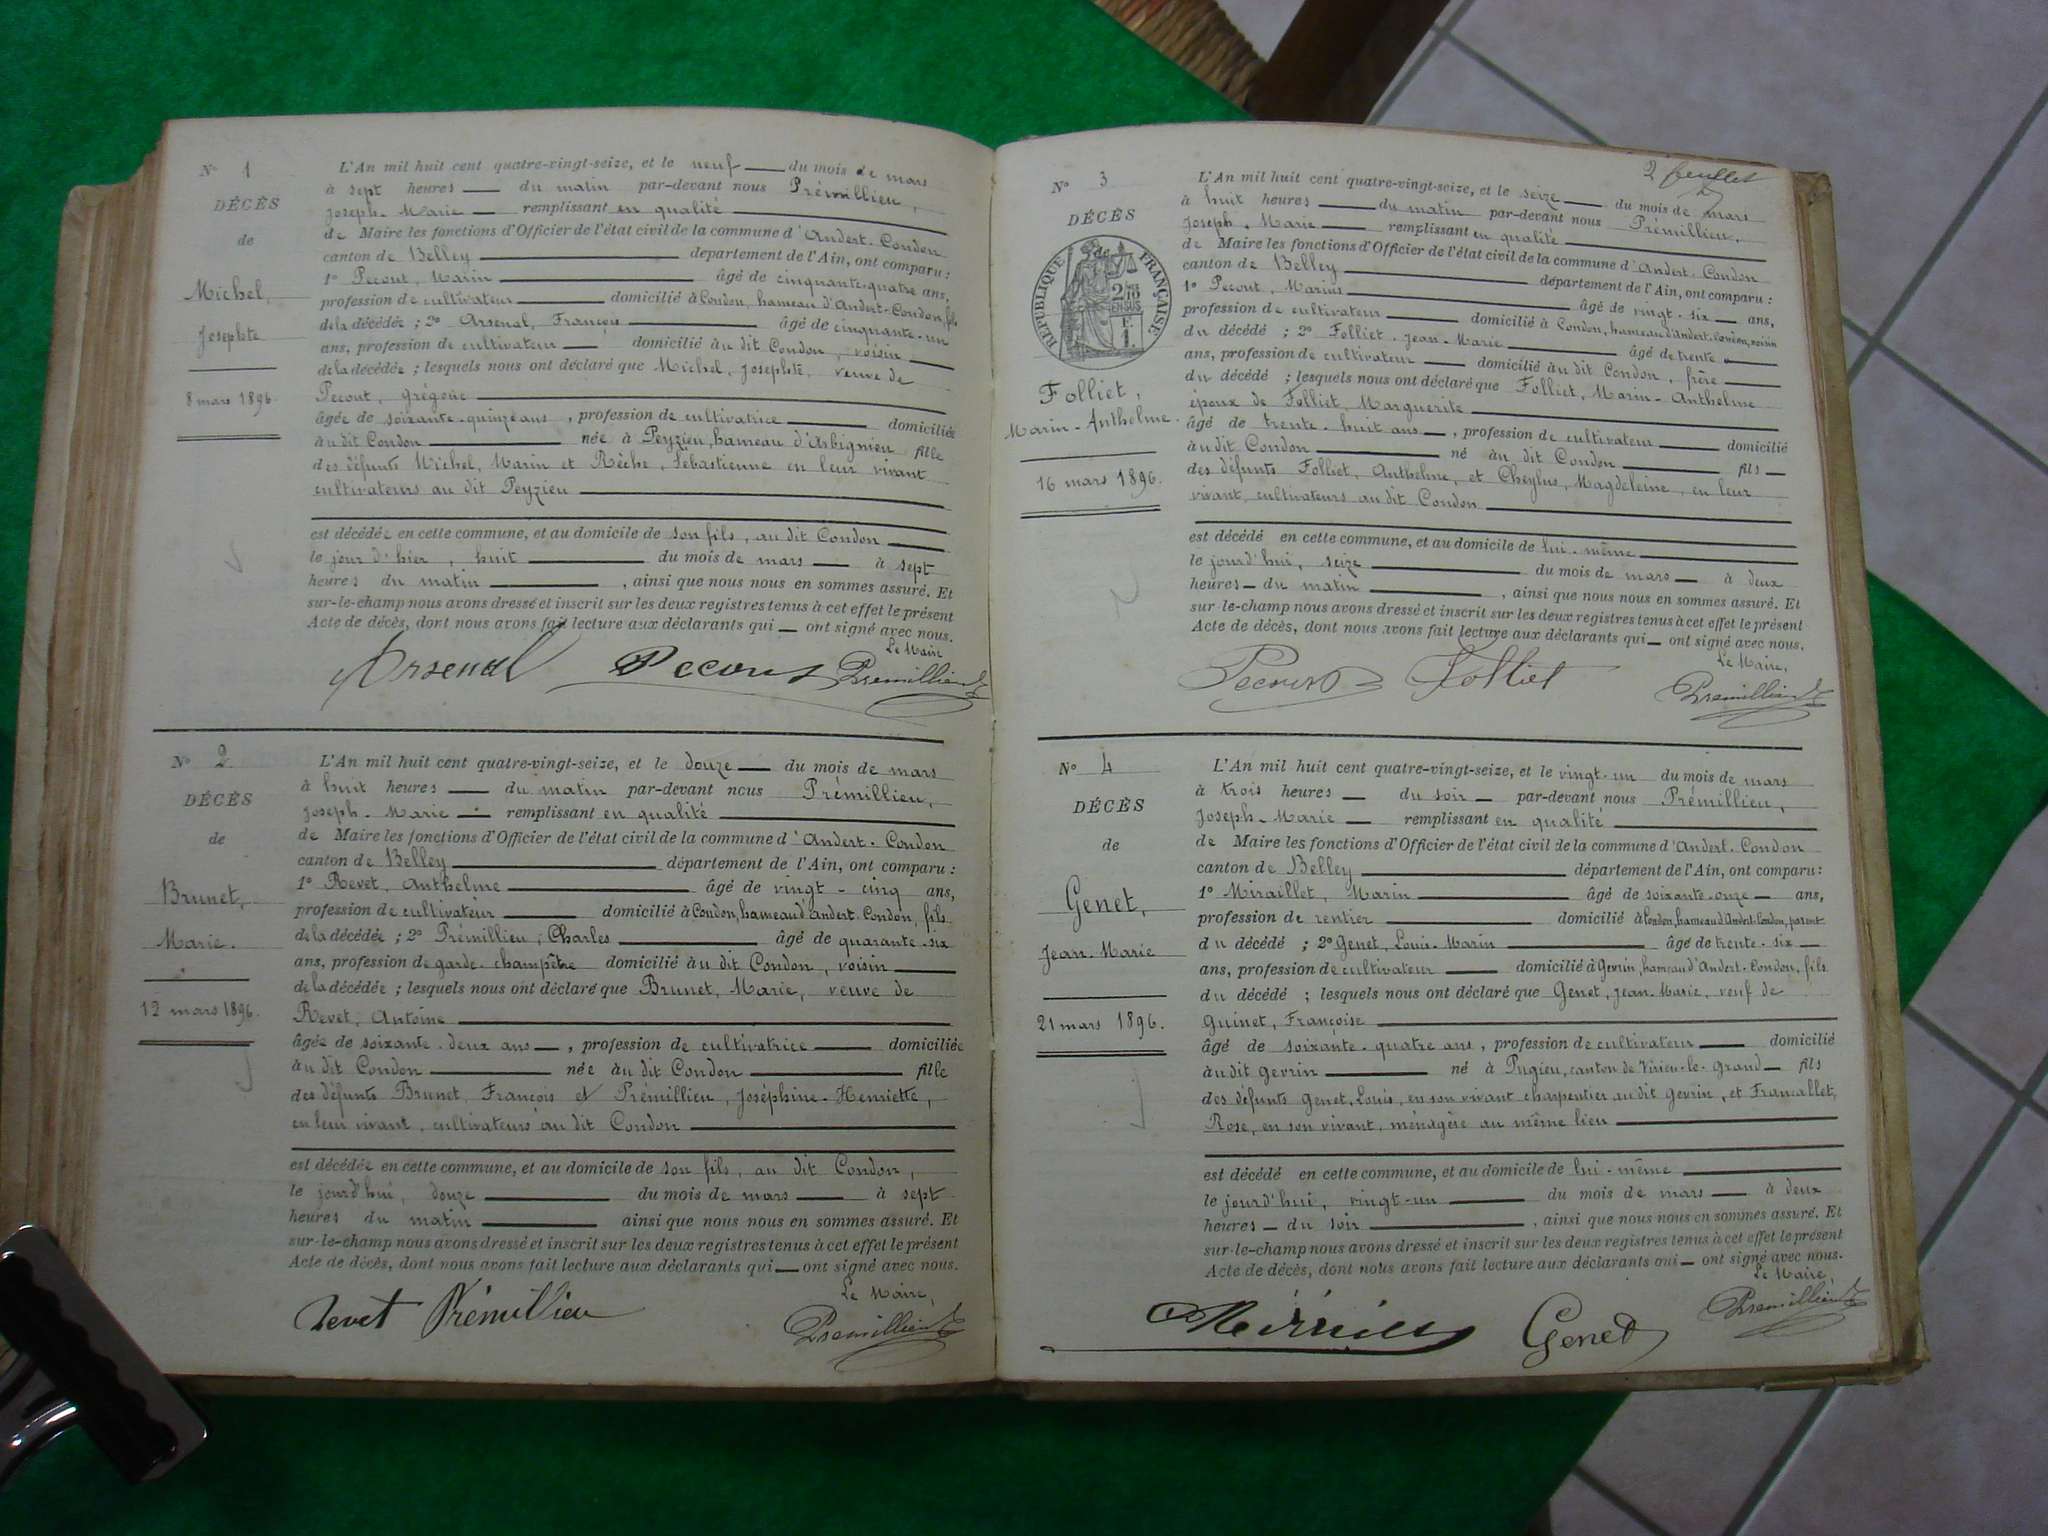 N° 1
DÉCÈS
de
Michel,
Josephte
8 mars 1896.
L'An mil huit cent quatre-vingt-seize, et le neuf du mois de mars
à sept heures du matin par-devant nous Prémillieu,
Joseph-Marie remplissant en qualité
de Maire les fonctions d'Officier de l'état civil de la commune d'Andert-Condon
canton de Belley département de l'Ain, ont comparu :
1° Pecout, Marin âgé de cinquante-quatre ans,
profession de cultivateur domicilié à Condon, hameau d'Andert-Condon, fils
de la décédée ; 2° Arsenal, François âgé de cinquante-un
ans, profession de cultivateur domicilié au dit Condon, voisin
de la décédée ; lesquels nous ont déclaré que Michel, Josephte, veuve de
Pecout, Grégoire
âgée de soixante-quinze ans, profession de cultivatrice domiciliée
au dit Condon née à Peyzieu, hameau d'Arbignieu fille
des défunts Michel, Marin et Rèche, Sébastienne en leur vivant
cultivateurs au dit Peyzieu
est décédée en cette commune, et au domicile de son fils, au dit Condon
le jour d'hier, huit du mois de mars à sept
heures du matin, ainsi que nous nous en sommes assuré. Et
sur-le-champ nous avons dressé et inscrit sur les deux registres tenus à cet effet le présent
Acte de décès, dont nous avons fait lecture aux déclarants qui ont signé avec nous.
Le Maire
Arsenal Pecout Premillieu
N° 2
DÉCÈS
de
Brunet,
Marie.
12 mars 1896.
L'An mil huit cent quatre-vingt-seize, et le douze du mois de mars
à huit heures du matin par-devant nous Prémillieu,
Joseph-Marie remplissant en qualité
de Maire les fonctions d'Officier de l'état civil de la commune d'Andert-Condon
canton de Belley département de l'Ain, ont comparu :
1° Revet, Anthelme âgé de vingt-cinq ans,
profession de cultivateur domicilié à Condon, hameau d'Andert-Condon, fils
de la décédée ; 2° Prémillieu, Charles âgé de quarante-six
ans, profession de garde-champêtre domicilié au dit Condon, voisin
de la décédée ; lesquels nous ont déclaré que Brunet, Marie, veuve de
Revet, Antoine
âgée de soixante-deux ans, profession de cultivatrice domiciliée
au dit Condon née au dit Condon fille
des défunts Brunet, François et Prémillieu, Joséphine-Henriette,
en leur vivant, cultivateurs au dit Condon
est décédée en cette commune, et au domicile de son fils, au dit Condon,
le jourd'hui, douze du mois de mars à sept
heures du matin ainsi que nous nous en sommes assuré. Et
sur-le-champ nous avons dressé et inscrit sur les deux registres tenus à cet effet le présent
Acte de décès, dont nous avons fait lecture aux déclarants qui ont signé avec nous.
Le Maire,
revet Prémillieu Premillieu
2 feuillet
N° 3
DÉCÈS
de
RÉPUBLIQUE FRANÇAISE
Folliet,
Marin-Anthelme.
16 mars 1896.
L'An mil huit cent quatre-vingt-seize, et le seize du mois de mars
à huit heures du matin par-devant nous Prémillieu,
Joseph-Marie remplissant en qualité
de Maire les fonctions d'Officier de l'état civil de la commune d'Andert-Condon
canton de Belley département de l'Ain, ont comparu :
1° Pecout, Marius âgé de vingt-six ans,
profession de cultivateur domicilié à Condon, hameau d'Andert-Condon, voisin
du décédé ; 2° Folliet, Jean-Marie âgé de trente
ans, profession de cultivateur domicilié au dit Condon, frère
du décédé ; lesquels nous ont déclaré que Folliet, Marin-Anthelme
époux de Folliet, Marguerite
âgé de trente-huit ans, profession de cultivateur domicilié
au dit Condon né au dit Condon fils
des défunts Folliet, Anthelme, et Cheylus, Magdeleine, en leur
vivant, cultivateurs au dit Condon
est décédé en cette commune, et au domicile de lui-même
le jourd'hui, seize du mois de mars à deux
heures du matin, ainsi que nous nous en sommes assuré. Et
sur-le-champ nous avons dressé et inscrit sur les deux registres tenus à cet effet le présent
Acte de décès, dont nous avons fait lecture aux déclarants qui ont signé avec nous.
Le Maire,
Pecout Folliet Premillieu
N° 4
DÉCÈS
de
Genet,
Jean-Marie
21 mars 1896.
L'An mil huit cent quatre-vingt-seize, et le vingt-un du mois de mars
à trois heures du soir par-devant nous Prémillieu,
Joseph-Marie remplissant en qualité
de Maire les fonctions d'Officier de l'état civil de la commune d'Andert-Condon
canton de Belley département de l'Ain, ont comparu :
1° Miraillet, Marin âgé de soixante-onze ans,
profession de rentier domicilié à Condon, hameau d'Andert-Condon, parent
du décédé ; 2° Genet, Louis-Marin âgé de trente-six
ans, profession de cultivateur domicilié à Gevrin, hameau d'Andert-Condon, fils
du décédé ; lesquels nous ont déclaré que Genet, Jean-Marie, veuf de
Guinet, Françoise
âgé de soixante-quatre ans, profession de cultivateur domicilié
au dit Gevrin né à Pugieu, canton de Virieu-le-Grand fils
des défunts Genet, Louis, en son vivant charpentier au dit Gevrin, et Francallet,
Rose, en son vivant, ménagère au même lieu
est décédé en cette commune, et au domicile de lui-même
le jourd'hui, vingt-un du mois de mars à deux
heures du soir, ainsi que nous nous en sommes assuré. Et
sur-le-champ nous avons dressé et inscrit sur les deux registres tenus à cet effet le présent
Acte de décès, dont nous avons fait lecture aux déclarants qui ont signé avec nous.
Le Maire,
Genet Premillieu